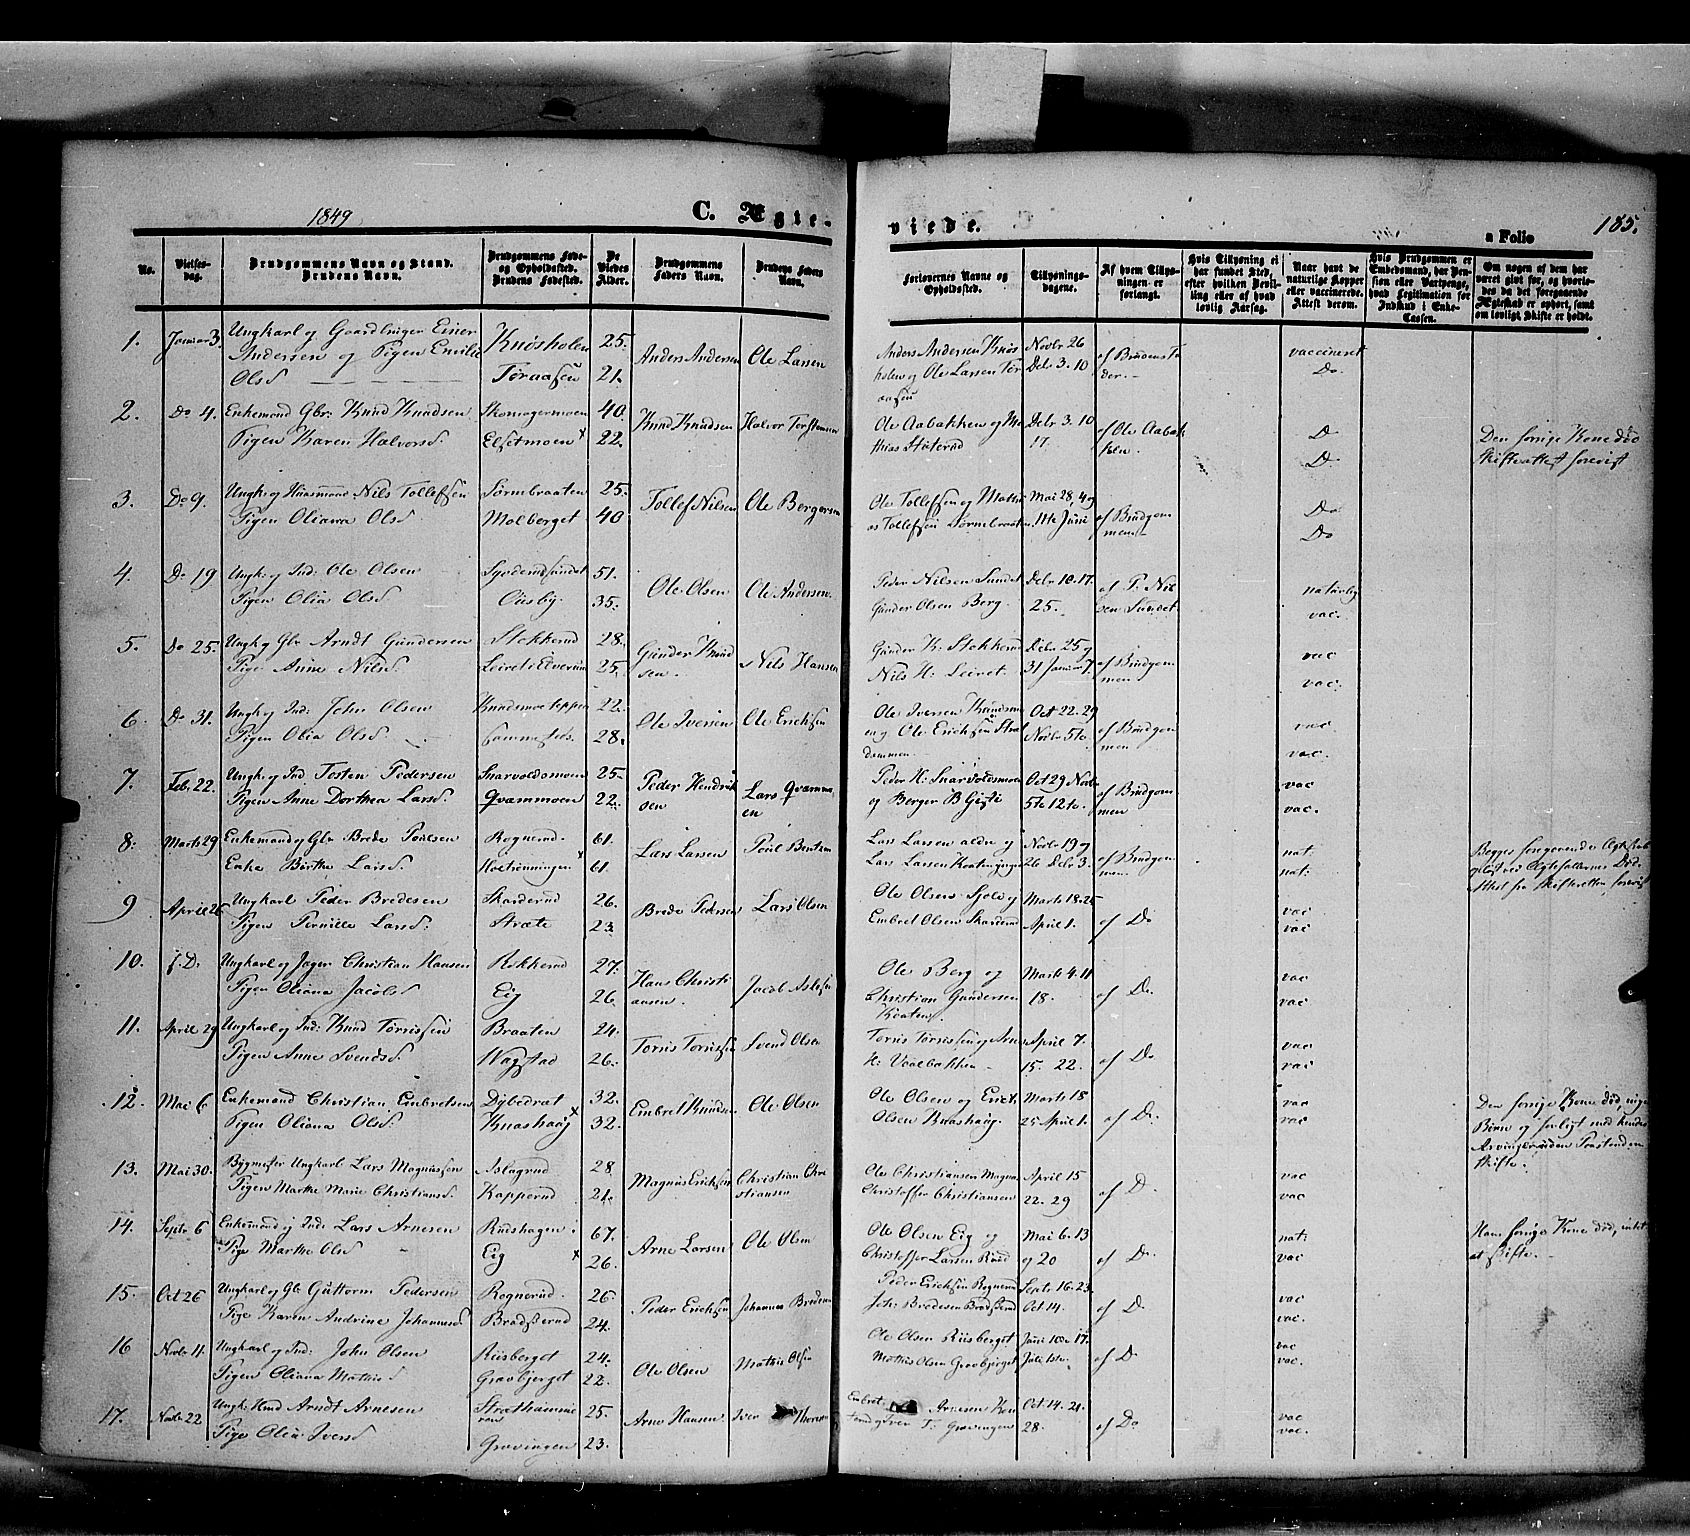 1849
C. Ægte-
viede.
a Folio
185.
No.
Vielses-
dag.
Brudgommens Navn og Stand.
Brudens Navn.
Brudgommens Føde-
og Opholdssted.
Brudens Fødested.
De
Viedes
Alder.
Brudgommens
Faders Navn.
Brudens Faders
Navn.
Forlovernes Navne og
Opholdssted.
Tillysnings-
dagene.
Af hvem Tillys-
ningen er
forlangt.
Hvis Tillysning ei
har fundet Sted,
efter hvilken Bevil-
ling eller af hvad
lovlig Aarsag.
Naar havt de
naturlige Kopper
eller vaccinerede.
Attest derom.
Hvis Brudgommen er
Embedsmand, har Pen-
sion eller Vartpenge,
hvad Legitimation for
Indskud i Enke-
Cassen.
Om nogen af dem har
været givt før, og hvorle-
des da det foregaaende
Ægteskab er ophørt, samt
om lovligt Skifte er holdt.
1. Januar 3. Ungkarl og Gaardbruger Einer Knøsholen 25. Anders Andersen Ole Larsen Anders Andersen Knøs Novbr 26 af Brudens Fa vaccineret
Andersen og Pigen Emilie Toraasen 21. holen og Ole Larsen Tør Debr 3. 10 der. Do
Olsd aasen
2. Do 4. Enkemand Gbr: Knud Knudsen Skomagermoen 40. Knud Knudsen Halvor Torstensen Ole Aabakken og Ma Debr 3. 10 af Ole Aabak D Den forrige Kone død
Pigen Karen Halvorsd. Elsetmoen x 22. thias 17. ken. D. Skifteattest forevist
3. Do 9. Ungk. og Huusmand Nils Tollefsen Sørmbraaten 25. Tollef Nilsen Ole Bergersen Ole Tollefsen og Mathi Mai 28, 4 og af Brudgom Do
Pigen Oliana Olsd Molberget 40 as Tollefsen Sørmbraaten 11te Juni men Do
4. Do 19 Ungk. og Ind: Ole Olsen 51. Ole Olsen Ole Andersen. Peder Nilsen Sundet Debr 10. 17. af P. Nil naturlig
Pigen Olia Olsd. Ousby. 35. Gunder Olsen Berg. 25. sen Sundet vac.
5. Do 25. Ungk og Gbr Arndt Gundersen Stokkerud 28. Gunder Knud Nils Hansen Gunder K: Stokkerud Debr 25 og af Brudgom vac
Pige Anne Nilsd. Leiret i Elverum 25. sen. Nils H: Leiret. 31 Januar 7. men vac.
6. Do 31. Ungk og Ind: John Olsen Knudsmoetoppen 22. Ole Iversen Ole Erichsen Ole Iversen Knudsmo Oct 22. 29 af Brudgom vac
Pigen Olia Olsd. 28. en og Ole Erichsen Novbr 5te men vac.
7. Feb. 22. Ungk. og Ind Tosten Pedersen Snarvoldsmoen 25. Peder Hendrik Lars Qvammo Peder H: Snarvoldsmoen Oct 29 Novbr af Brudgom vac
Pigen Anne Dorthea Larsd. Qvammoen 22. sen en og Berger B 5te 12te. men vac.
8. Marts 29 Enkemand og Gbr. Brede Poulsen Rognerud. 61. Lars Larsen Poul Bentsen Lars Larsen ældre og Novbr 19 og af Brudgom nat: Begges foregaaende Ægteskab
Enke Birthe Larsd. x 61. Lars Larsen 26 Debr 3. men. nat: opløst ved Ægtefællernes Død.
Attest fra Skifteretten forevist
9 April 26 Ungkarl Peder Bredesen Skarderud 26. Brede Pedersen Lars Olsen Ole Olsen Sjøli og Marts 18. 25 af Do vac
Pigen Pernille Larsd. Stræte 23. Embret Olsen Skarderud April 1. vac
10. f.D. Ungkarl og Jæger Christian Hansen Rokkerud 27. Hans Christi Jacob Aslesen Ole Berg og Marts 4. 11 af Do. vac
Pigen Oliana Jacobsd Eig 26. ansen. Christian Gundersen 18. vac
Kvaten.
11. April 29 Ungkarl og Ind: Knud Torrissen Braaten 24. Torris Torrissen Svend Olsen Torris Torrissen og Arne April 7. af Do vac
Pigen Anne Svendsd. Vagstad 26. H: Vaalbakken 15. 22. vac
12. Mai 6 Enkemand Christian Embretsen Dybedrat 32. Embret Knudsen Ole Olsen Ole Olsen og Erick Marts 18 af D. vac Den forrige Kone død, ingen
Pigen Oliana Olsd. Knashaug x 32. Olsen Knashaug. 25 April 1. vac Børn og forligt med hendes
Arvinger uden Paastand om
Skifte.
13. Mai 30. Bygmester Ungkarl Lars Magnussen Aslagrud 28 Magnus Erichsen Christian Chri Ole Christiansen Magnus April 15 af D. vac
Pigen Marthe Marie Christiansd. Kopperud 21. stiansen Christoffer Christiansen 22. 29 vac
14. Septr 6 Enkemand og Ind: Lars Arnesen Rudshagen 67. Arne Larsen Ole Olsen Ole Olsen Eig og Mai 6. 13 af D. nat: Hans forrige Kone død, intet
Pige Marthe Olsd Eig x 26. Christoffer Larsen Ruud og 20 vac at skifte.
15. Oct 26 Ungkarl og Gb. Guttorm Pedersen Rognerud. 26. Peder Erichsen Johannes Bredesen Peder Erichsen Rognerud Septr 16. 23. af D. vac
Pige Karen Andrine Johannesd Bradserud 24. Joh: Bredesen Bradserud Oct 14. vac.
16 Novbr 4. Ungkarl og Ind: John Olsen Riisberget 24. Ole Olsen Mathis Olsen Ole Olsen Riisberget Juni 10de 17. af D vac
Pigen Oliana Mathisd Gravbjerget 22. Mathis Olsen Gravbjerget Juli 1ste. vac.
17. Novbr 22 Ungk. Arndt Arnesen 25. Arne Hansen Iver Thoresen Embret Arnesen Oct 14. 21. af Do vac
Pige Olia Iversd Gravingen 23. Gravingen 28. vac.